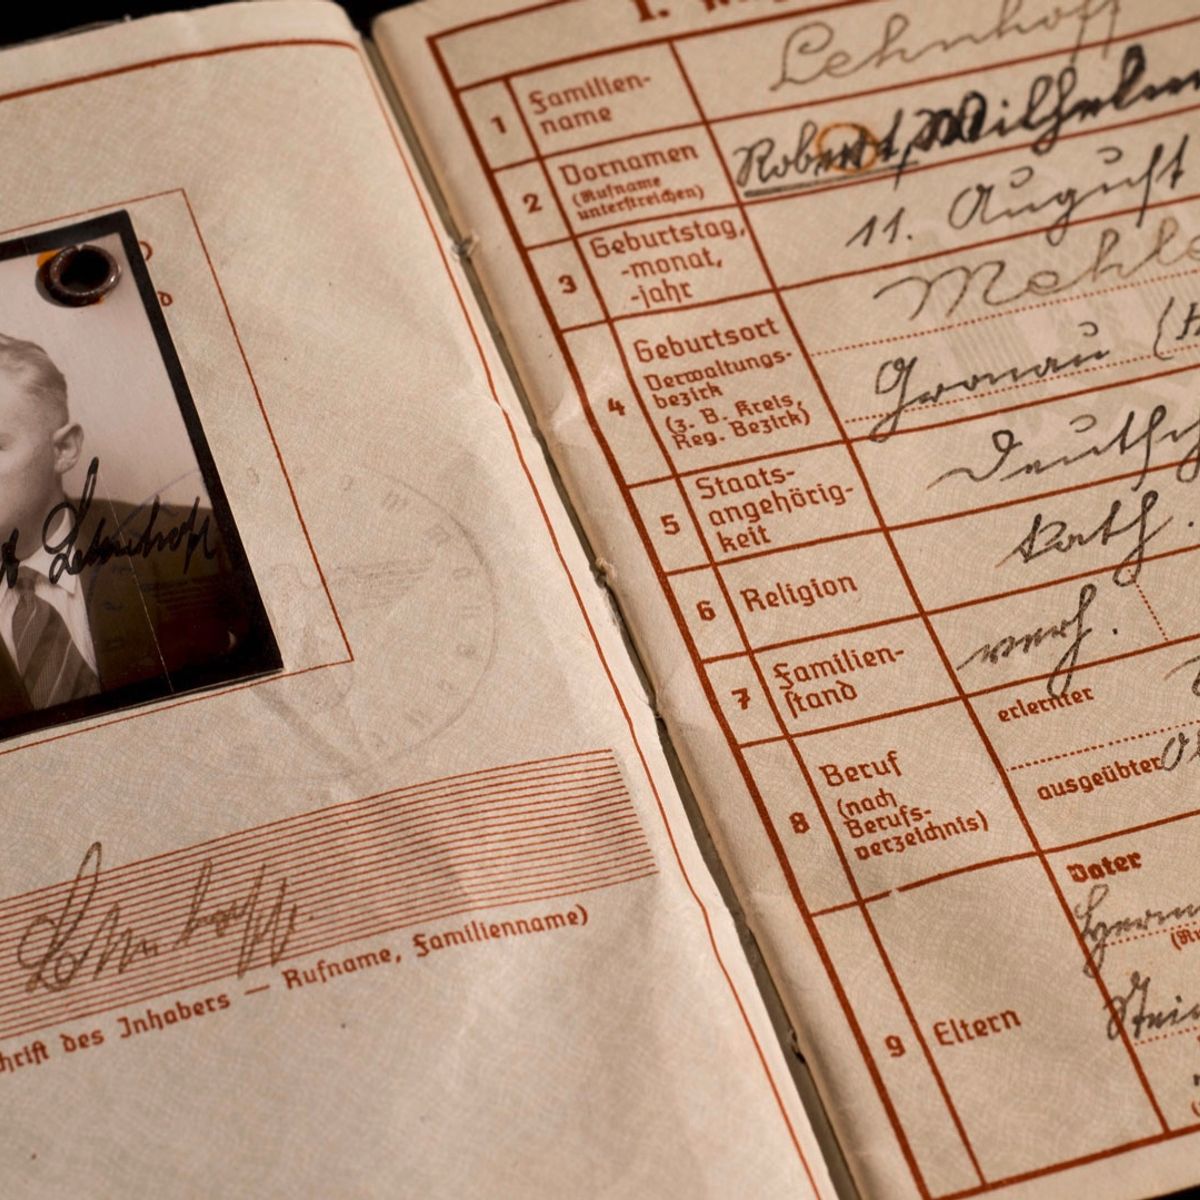 Lehnhoff
chrift des Inhabers — Rufname, Familienname)
I.
1 Familien-
name
Lehnhoff
2 Vornamen
(Rufname
unterstreichen)
Robert, Wilhelm
3 Geburtstag,
-monat,
-jahr
11. August
4 Geburtsort
Verwaltungs-
bezirk
(z. B. Kreis,
Reg. Bezirk)
Mehle
Gronau (H
5 Staats-
angehörig-
keit
Deutsch
6 Religion
kath.
7 Familien-
stand
verh.
8 Beruf
(nach
Berufs-
verzeichnis)
erlernter
ausgeübter
9 Eltern
Vater
(Ru